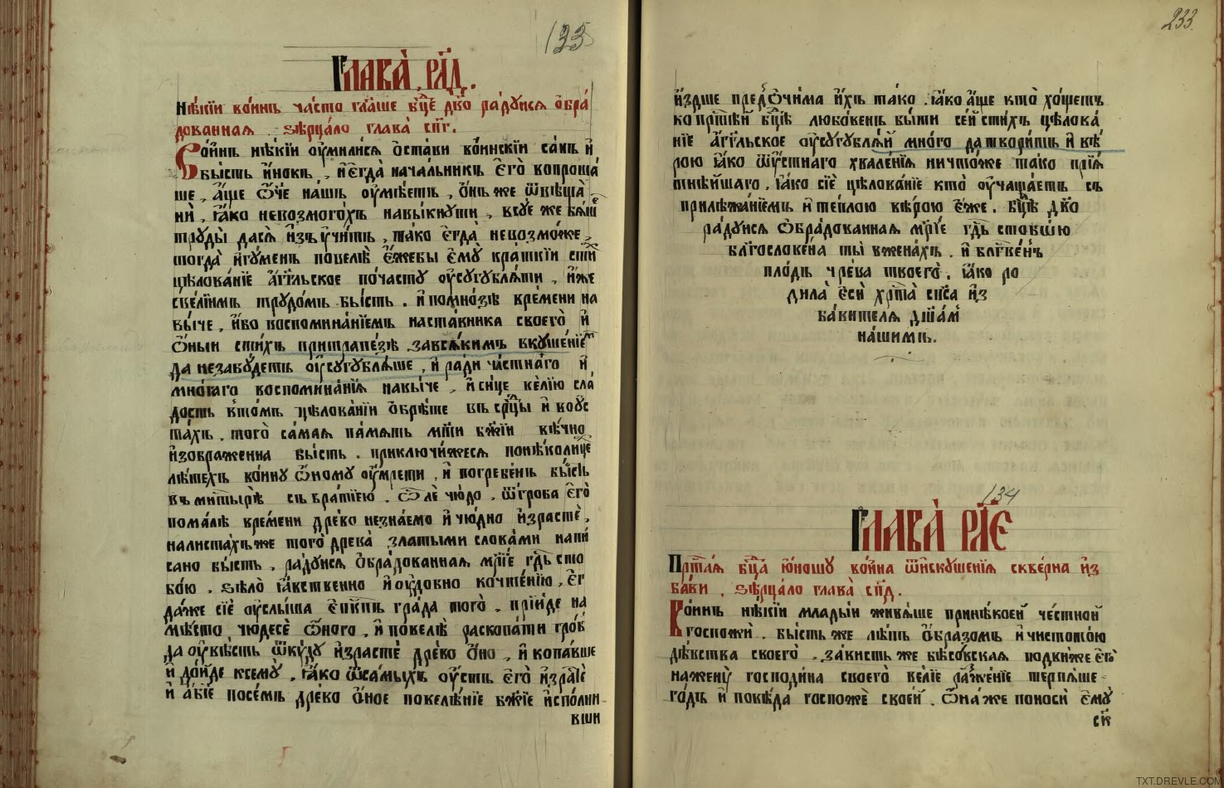 133
Глава̀ рл҃д.
Нѣ́кїи во́инъ ча́сто гл҃аше бц҃е дв҃о ра́дꙋйся ѡбра́
дованная . ѕѣ́рцало глава̀ сп҃г.
Во́инъ нѣ́кїи ᲂу҆мили́ся ѡста́ви во́инскїи са́нъ и҆
бы́сть и҆но́къ , и҆ е҆гда̀ нача́льникъ е҆го̀ вопроша́
ше , а҆́ще ѻ҆́ч҃е на́шъ ᲂу҆мѣ́етъ , ѻ҆́нъ же ѿвѣща̀
ни , ꙗ҆́ко невозмого́хъ навы́кнꙋти , вᲂу҆́е же бы́ша
трꙋды̀ дася и҆зᲂу҆чи́ть , та́ко е҆гда̀ невозмо́же
тогда̀ и҆гꙋ́менъ повелѣ̀ е҆́жебы е҆мꙋ̀ кра́ткїи сти́
цѣлова́нїе а҆́гг҃льское поча́стꙋ ᲂу҆сꙋгꙋбля́ти , и҆́же
свели́имъ трꙋдо́мъ бы́сть . и҆ помно́зѣ вре́мени на
вы́че , и҆́бо воспомина́нїемъ наста́вника своего̀ и҆
ѻ҆́ныи сти́хъ притрапе́зѣ зався́кимъ вкꙋше́нїе
да незабꙋ́детъ ᲂу҆сꙋгꙋбля́ше , и҆ ра́ди ча́стнаго и҆
мно́гаго воспомина́нїя навы́че , и҆ си́це ве́лїю сла́
дость вто́мъ цѣлова́нїи ѡбрѣ́те въ ср҃цы и҆ воᲂу҆с
та́хъ . того̀ са́мая па́мять мт҃и бж҃їи вѣ́чно
и҆зображе́нна бы́сть . приключи́жеся понѣко́лице
лѣ́техъ во́инꙋ ѻ҆́номꙋ ᲂу҆мре́ти , и҆ погребе́нъ бы́сть
въ мнты́рѣ съ бра́тїею . ѽле чю́до . ѿгро́ба е҆го̀
пома́лѣ вре́мени дре́во незна́емо и҆ чю́дно и҆зрастѐ ,
налиста́хъже того̀ дре́ва златы́ми слова́ми напи́
сано бы́сть , ра́дꙋйся ѡбра́дованная мр҃і́е гд҃ь сто
бо́ю . ѕѣло̀ ꙗ҆́вственно и҆ ᲂу҆до́вно ко чте́нїю , е҆г
да́же сїѐ ᲂу҆слы́ша е҆пи́кпъ гра́да того̀ . прїи́де на
мѣ́сто чюдесѐ ѻ҆́ного , и҆ повелѣ̀ раскопа́ти гро́б
да ᲂу҆вѣ́сть ѿкꙋ́дꙋ и҆зрастѐ дре́во ѻ҆́но , и҆ копа́вше
и҆ до́йде всемꙋ̀ , ꙗ҆́ко ѿса́мыхъ ᲂу҆́стъ е҆го̀ и҆зра́сте
и҆ а҆́бїе посе́мъ дре́во ѻ҆́ное повелѣ́нїе бж҃їе и҆спо́лни
вши
233
и҆зы́де предѻ҆чи́ма и҆́хъ та́ко . ꙗ҆́ко а҆́ще кто̀ хо́щетъ
ко пр҃тѣ́й бц҃ѣ любо́венъ бы́ти се́й сти́хъ цѣлова́
нїе а҆́гг҃льское ᲂу҆сꙋгꙋбля́й мно́го да твори́тъ и҆ вѣ́
рою ꙗ҆́ко ѿᲂу҆́стнаго хвале́нїя ничто́же та́ко прїя́
тнѣ́йшаго , ꙗ҆́ко сїѐ цѣлова́нїе кто̀ ᲂу҆чаща́етъ съ
прилѣжа́нїемъ и҆ те́плою вѣ́рою е҆́же . бц҃е дв҃о
ра́дꙋйся ѡбра́дованная мр҃і́е гд҃ь стобо́ю
благослове́на ты̀ вжена́хъ . и҆ блгве́нъ
пло́дъ чре́ва твоего̀ . ꙗ҆́ко ро
дила̀ е҆сѝ хр҃та̀ сп҃са и҆з
ба́вителя дш҃а́мъ
на́шимъ.
134
Глава̀ рл҃е
Пр҃та́я бц҃а ю҆́ношꙋ во́ина ѿи҆скꙋше́нїя скве́рна и҆з
ба́ви . ѕѣ́рцало глава̀ сп҃д.
Во́инъ нѣ́кїи млады́и живя́ше принѣ́коеи че́стной
госпожѝ . бы́сть же лѣ́пъ ѻ҆́бразомъ и҆ чистото́ю
дѣ́вства своего̀ . за́висть же бѣсо́вская подви́же е҆го̀
наженꙋ̀ господи́на своего̀ ве́лїе раз̾же́нїе терпя́ше
го́дъ и҆ повѣ́да госпо́жѣ свое́й . ѻ҆на́же поносѝ е҆мꙋ̀
TXT.DREVLE.COM